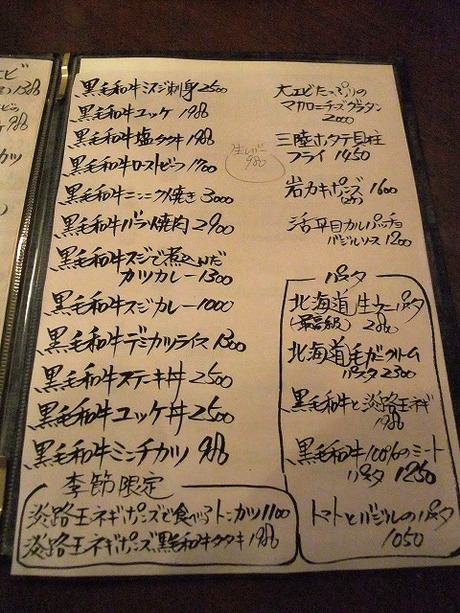 黒毛和牛ミスジ刺身2500
黒毛和牛ユッケ 1980
黒毛和牛塩タタキ 1980
黒毛和牛ローストビーフ 1700
黒毛和牛ニンニク焼き 3000
黒毛和牛バラ焼肉 2900
黒毛和牛スジで煮込んだ
カツカレー1300
黒毛和牛スジカレー1000
黒毛和牛デミカツライス 1300
黒毛和牛ステーキ丼 2500
黒毛和牛ユッケ丼 2500
黒毛和牛ミンチカツ 980
季節限定
淡路玉ネギポンズで食べるトンカツ1100
淡路玉ネギポンズ黒毛和牛タタキ1980
生レバー
980
大エビたっぷりの
マカロニチーズグラタン
2000
三陸ホタテ貝柱
フライ 1450
岩カキポンズ 1600
活平目カルパッチョ
バジルソース 1200
パスタ
北海道生ウニパスタ
(最高級) 2880
北海道毛ガニクリーム
パスタ 2300
黒毛和牛と淡路玉ネギ
1980
黒毛和牛100%のミート
パスタ 1250
トマトとバジルのパスタ
1050